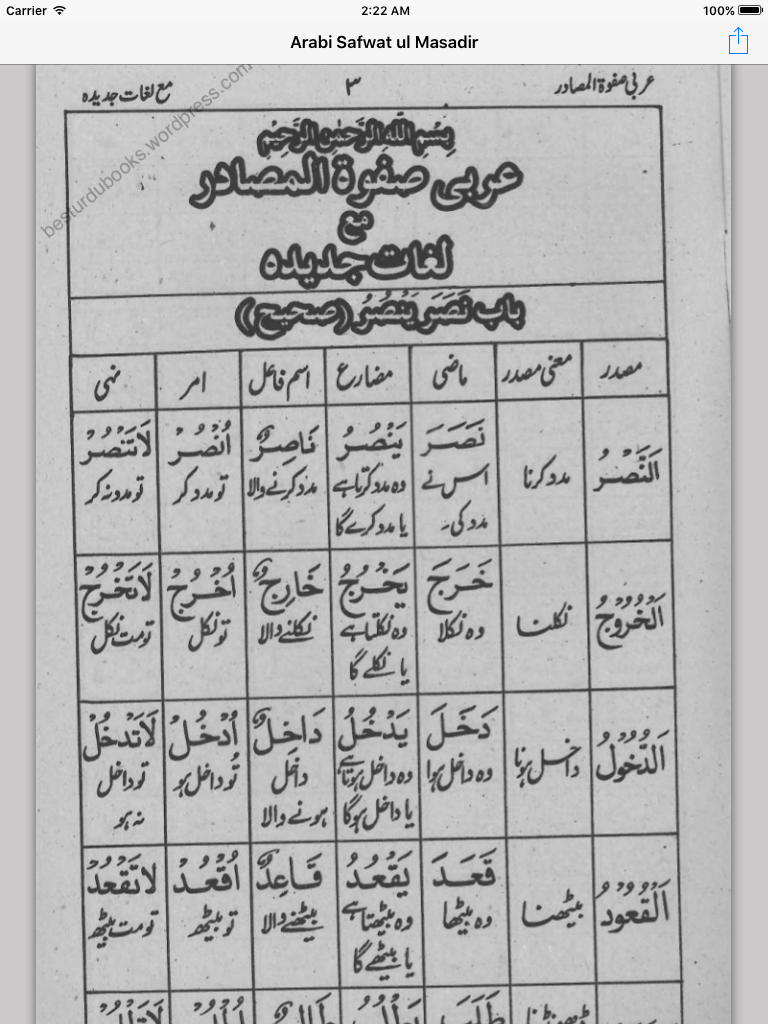 Carrier
2:22 AM
100%
Arabi Safwat ul Masadir
عربی صفوۃ المصادر
۳
مع لغات جدیدہ
besturdubooks.wordpress.com
بِسْمِ اللّٰهِ الرَّحْمٰنِ الرَّحِيْمِ
عربی صفوۃ المصادر
مع
لغات جدیدہ
باب نَصَرَ يَنْصُرُ (صحیح)
مصدر
معنی مصدر
ماضی
مضارع
اسم فاعل
امر
نہی
اَلنَّصْرُ
مدد کرنا
نَصَرَ
اس نے
مدد کی۔
يَنْصُرُ
وہ مدد کرتا ہے
یا مدد کرے گا
نَاصِرٌ
مدد کرنے والا
اُنْصُرْ
تو مدد کر
لَاتَنْصُرْ
تو مدد نہ کر
اَلْخُرُوْجُ
نکلنا
خَرَجَ
وہ نکلا
يَخْرُجُ
وہ نکلتا ہے
یا نکلے گا
خَارِجٌ
نکلنے والا
اُخْرُجْ
تو نکل
لَاتَخْرُجْ
تو مت نکل
اَلدُّخُوْلُ
داخل ہونا
دَخَلَ
وہ داخل ہوا
يَدْخُلُ
وہ داخل ہوتا ہے
یا داخل ہوگا
دَاخِلٌ
داخل
ہونے والا
اُدْخُلْ
تُو داخل ہو
لَاتَدْخُلْ
تو داخل
نہ ہو
اَلْقُعُوْدُ
بیٹھنا
قَعَدَ
وہ بیٹھا
يَقْعُدُ
وہ بیٹھتا ہے
یا بیٹھے گا
قَاعِدٌ
بیٹھنے والا
اُقْعُدْ
تو بیٹھ
لَاتَقْعُدْ
تو مت بیٹھ